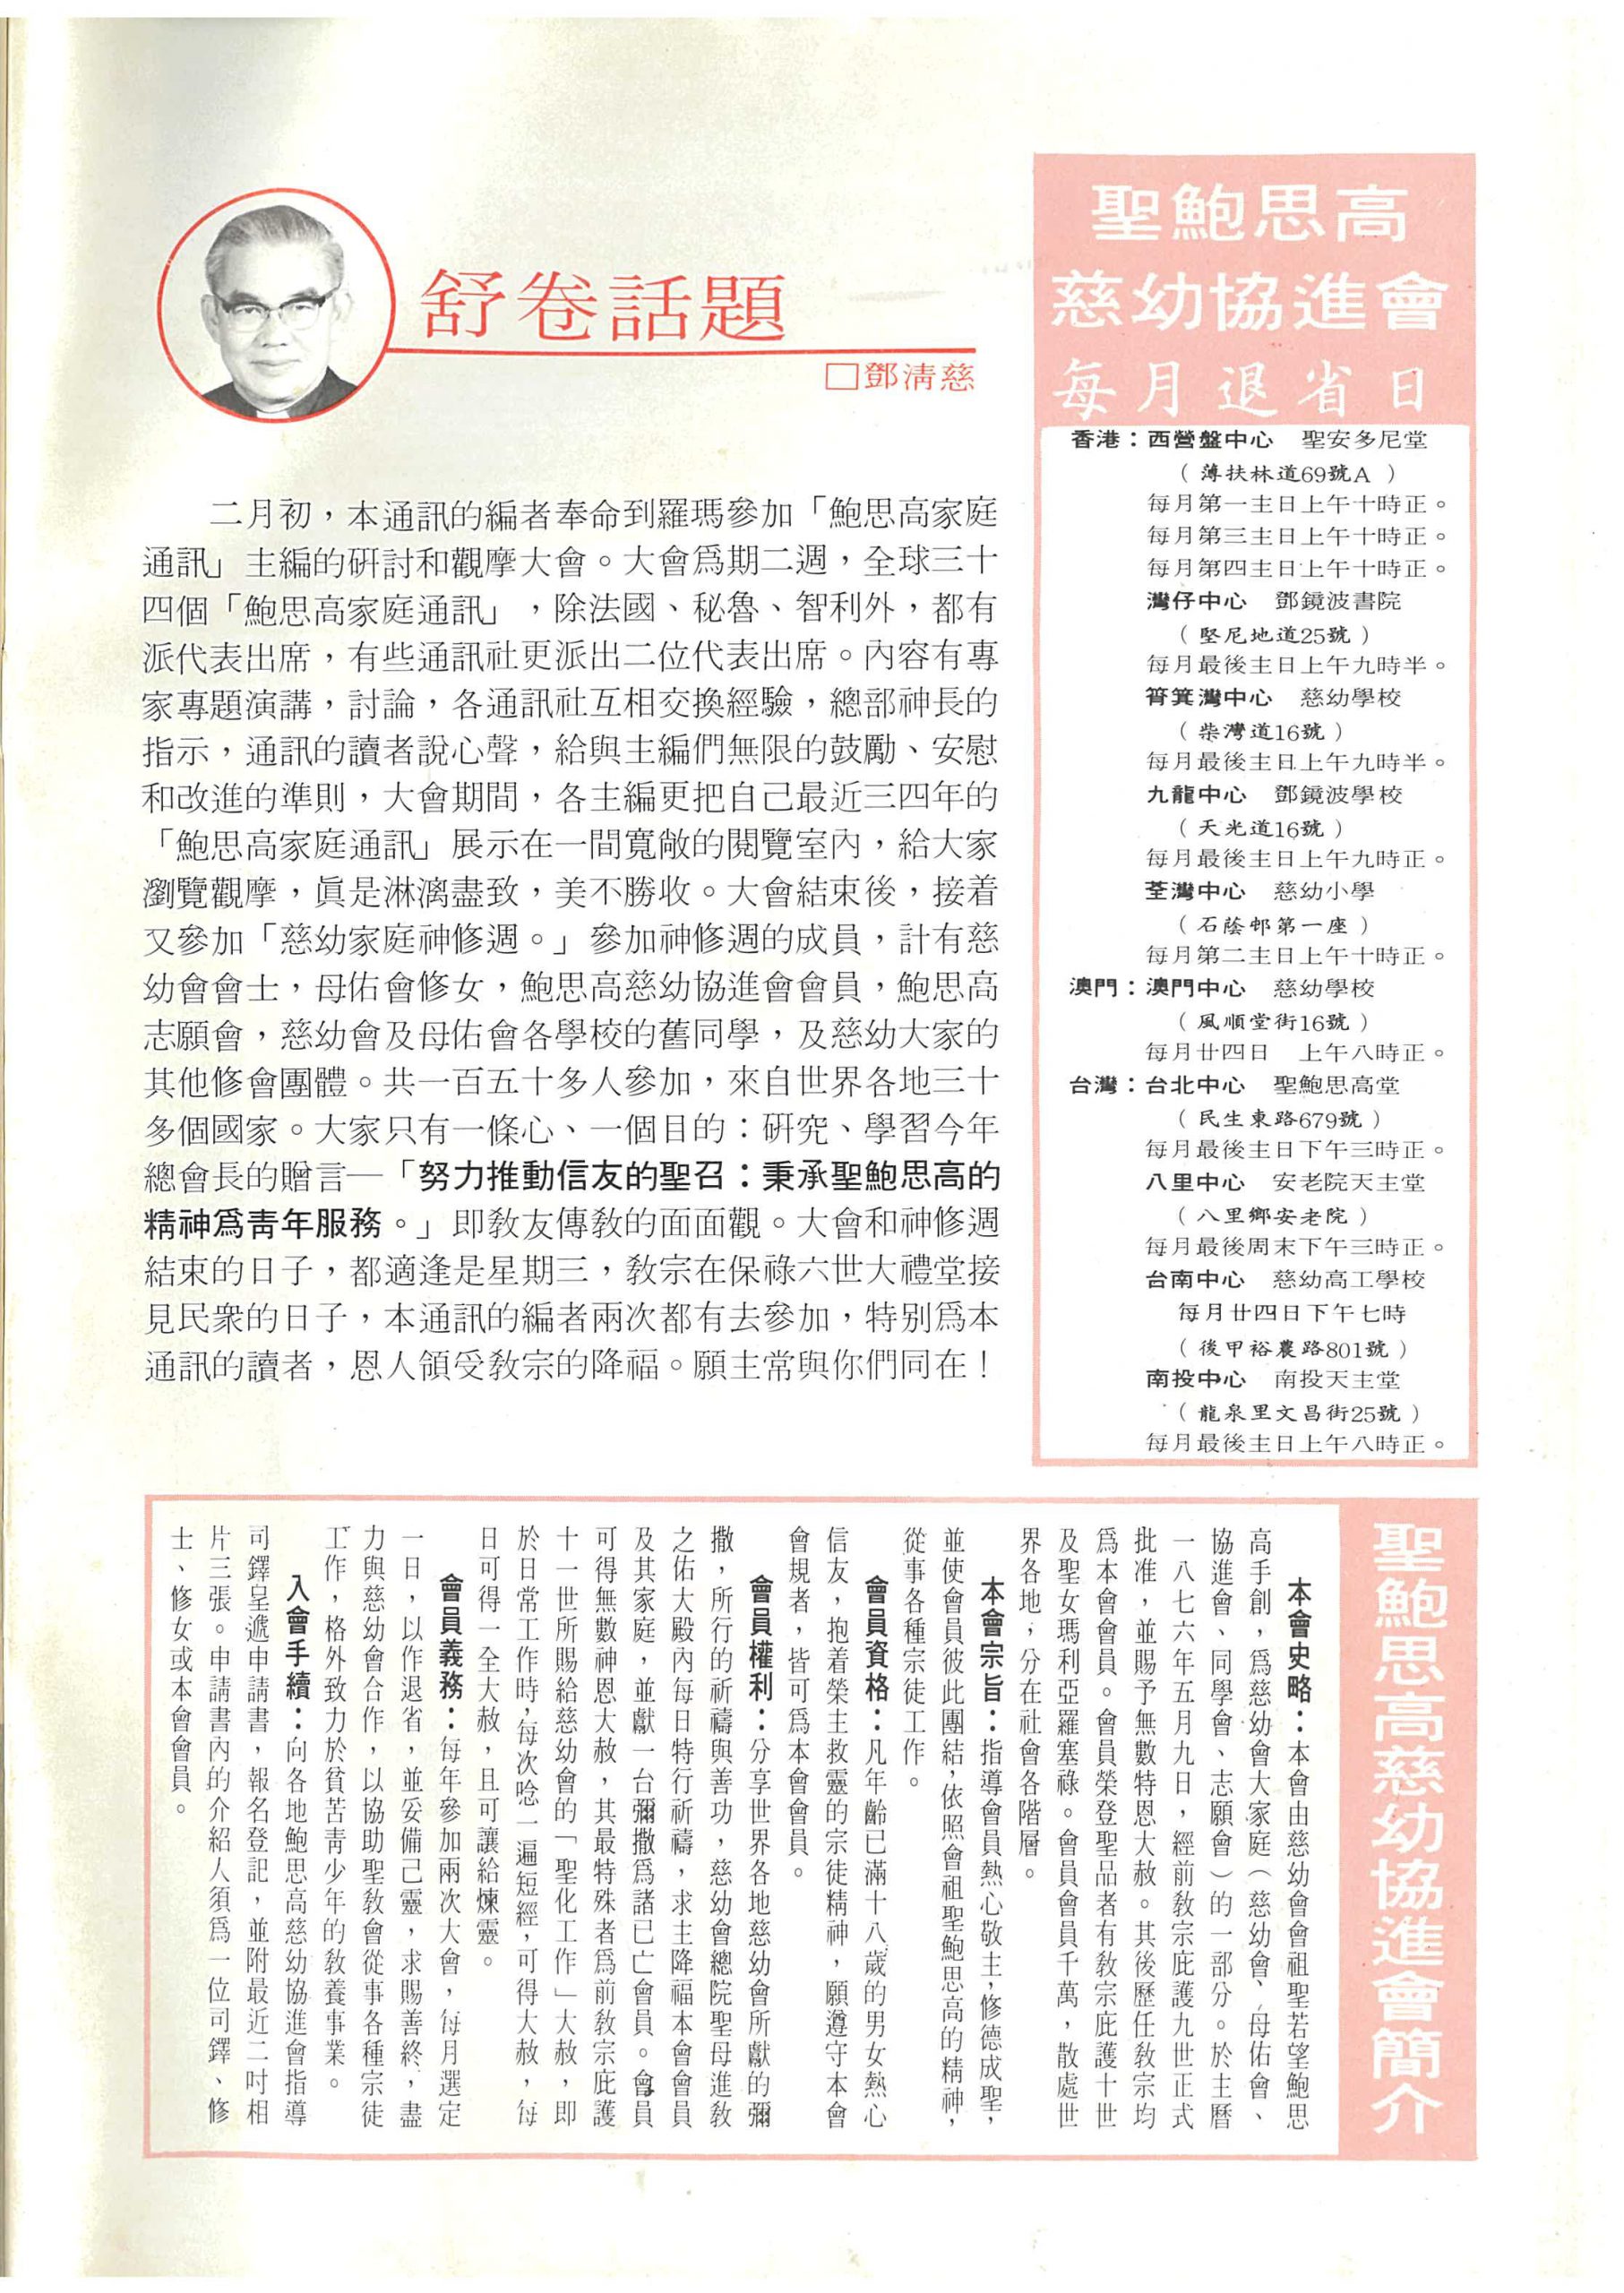 舒卷話題
□鄧淸慈
二月初，本通訊的編者奉命到羅瑪參加「鮑思高家庭
通訊」主編的硏討和觀摩大會。大會爲期二週，全球三十
四個「鮑思高家庭通訊」，除法國、秘魯、智利外，都有
派代表出席，有些通訊社更派出二位代表出席。內容有專
家專題演講，討論，各通訊社互相交換經驗，總部神長的
指示，通訊的讀者說心聲，給與主編們無限的鼓勵、安慰
和改進的準則，大會期間，各主編更把自己最近三四年的
「鮑思高家庭通訊」展示在一間寬敞的閱覽室內，給大家
瀏覽觀摩，眞是淋漓盡致，美不勝收。大會結束後，接着
又參加「慈幼家庭神修週。」參加神修週的成員，計有慈
幼會會士，母佑會修女，鮑思高慈幼協進會會員，鮑思高
志願會，慈幼會及母佑會各學校的舊同學，及慈幼大家的
其他修會團體。共一百五十多人參加，來自世界各地三十
多個國家。大家只有一條心、一個目的：硏究、學習今年
總會長的贈言—「努力推動信友的聖召：秉承聖鮑思高的
精神爲靑年服務。」即敎友傳敎的面面觀。大會和神修週
結束的日子，都適逢是星期三，敎宗在保祿六世大禮堂接
見民衆的日子，本通訊的編者兩次都有去參加，特別爲本
通訊的讀者，恩人領受敎宗的降福。願主常與你們同在！
聖鮑思高
慈幼協進會
每月退省日
香港：西營盤中心　聖安多尼堂
（薄扶林道69號A）
每月第一主日上午十時正。
每月第三主日上午十時正。
每月第四主日上午十時正。
灣仔中心　鄧鏡波書院
（堅尼地道25號）
每月最後主日上午九時半。
筲箕灣中心　慈幼學校
（柴灣道16號）
每月最後主日上午九時半。
九龍中心　鄧鏡波學校
（天光道16號）
每月最後主日上午九時正。
荃灣中心　慈幼小學
（石蔭邨第一座）
每月第二主日上午十時正。
澳門：澳門中心　慈幼學校
（風順堂街16號）
每月廿四日　上午八時正。
台灣：台北中心　聖鮑思高堂
（民生東路679號）
每月最後主日下午三時正。
八里中心　安老院天主堂
（八里鄉安老院）
每月最後周末下午三時正。
台南中心　慈幼高工學校
每月廿四日下午七時
（後甲裕農路801號）
南投中心　南投天主堂
（龍泉里文昌街25號）
每月最後主日上午八時正。
聖鮑思高慈幼協進會簡介
本會史略：本會由慈幼會會祖聖若望鮑思
高手創，爲慈幼會大家庭（慈幼會、母佑會、
協進會、同學會、志願會）的一部分。於主曆
一八七六年五月九日，經前敎宗庇護九世正式
批准，並賜予無數特恩大赦。其後歷任敎宗均
爲本會會員。會員榮登聖品者有敎宗庇護十世
及聖女瑪利亞羅塞祿。會員會員千萬，散處世
界各地，分在社會各階層。
本會宗旨：指導會員熱心敬主，修德成聖，
並使會員彼此團結，依照會祖聖鮑思高的精神，
從事各種宗徒工作。
會員資格：凡年齡已滿十八歲的男女熱心
信友，抱着榮主救靈的宗徒精神，願遵守本會
會規者，皆可爲本會會員。
會員權利：分享世界各地慈幼會所獻的彌
撒，所行的祈禱與善功，慈幼會總院聖母進敎
之佑大殿內每日特行祈禱，求主降福本會會員
及其家庭，並獻一台彌撒爲諸已亡會員。會員
可得無數神恩大赦，其最特殊者爲前敎宗庇護
十一世所賜給慈幼會的「聖化工作」大赦，即
於日常工作時，每次唸一遍短經，可得大赦，每
日可得一全大赦，且可讓給煉靈。
會員義務：每年參加兩次大會，每月選定
一日，以作退省，並妥備己靈，求賜善終，盡
力與慈幼會合作，以協助聖敎會從事各種宗徒
工作，格外致力於貧苦靑少年的敎養事業。
入會手續：向各地鮑思高慈幼協進會指導
司鐸呈遞申請書，報名登記，並附最近二吋相
片三張。申請書內的介紹人須爲一位司鐸、修
士、修女或本會會員。